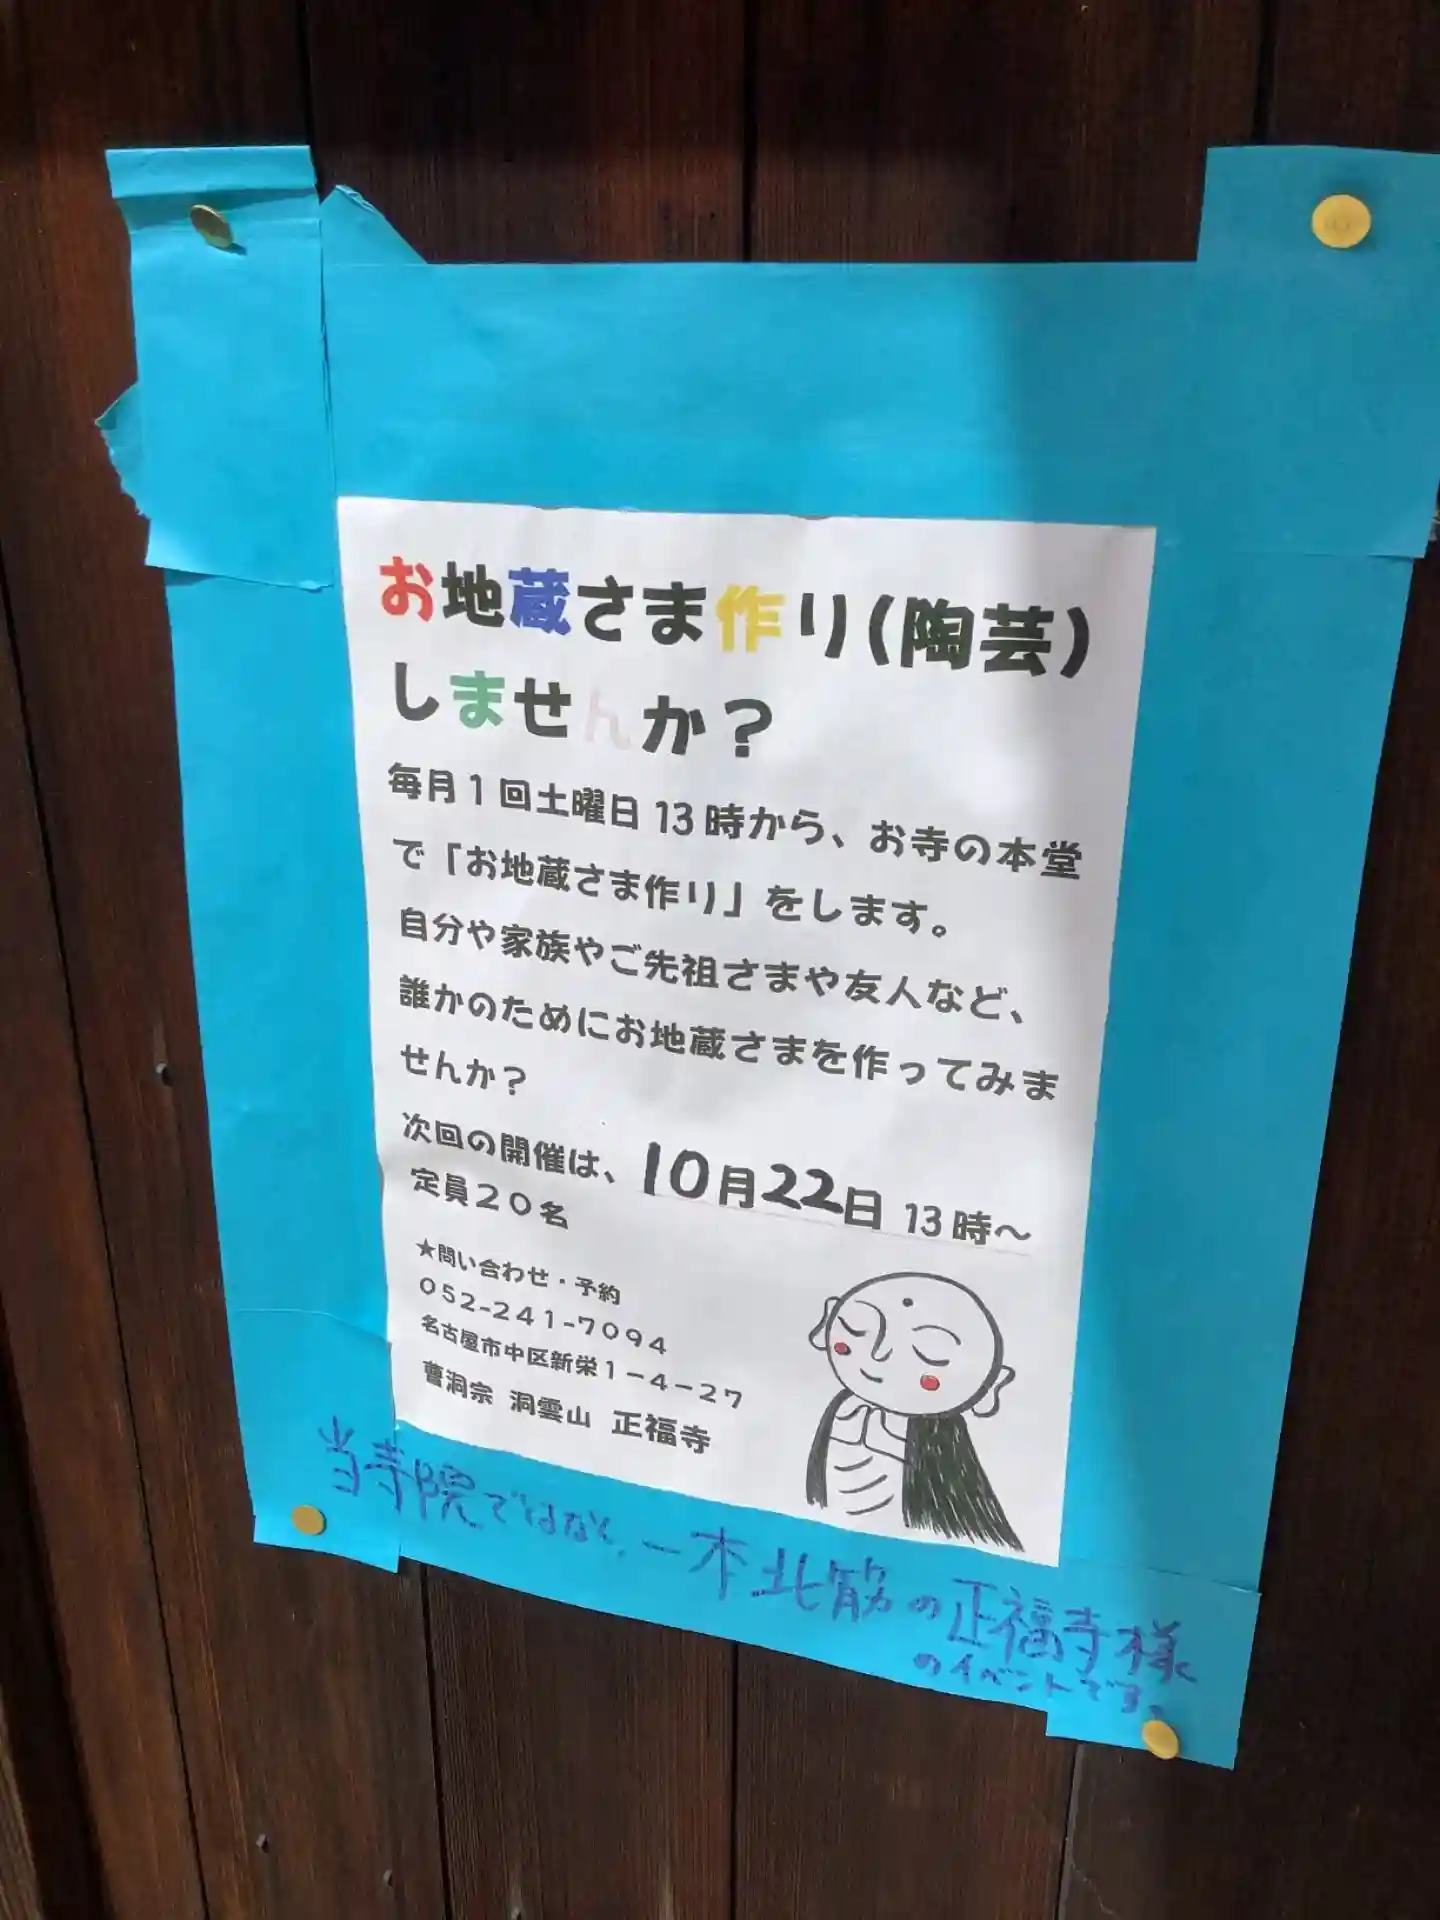 お地蔵さま作り(陶芸)
しませんか？
毎月1回土曜日 13時から、お寺の本堂
で「お地蔵さま作り」をします。
自分や家族やご先祖さまや友人など、
誰かのためにお地蔵さまを作ってみま
せんか？
次回の開催は、10月22日 13時～
定員２０名
★問い合わせ・予約
052-241-7094
名古屋市中区新栄１－４－２７
曹洞宗 洞雲山 正福寺
当寺院ではなく、一本北筋の正福寺様
のイベントです。